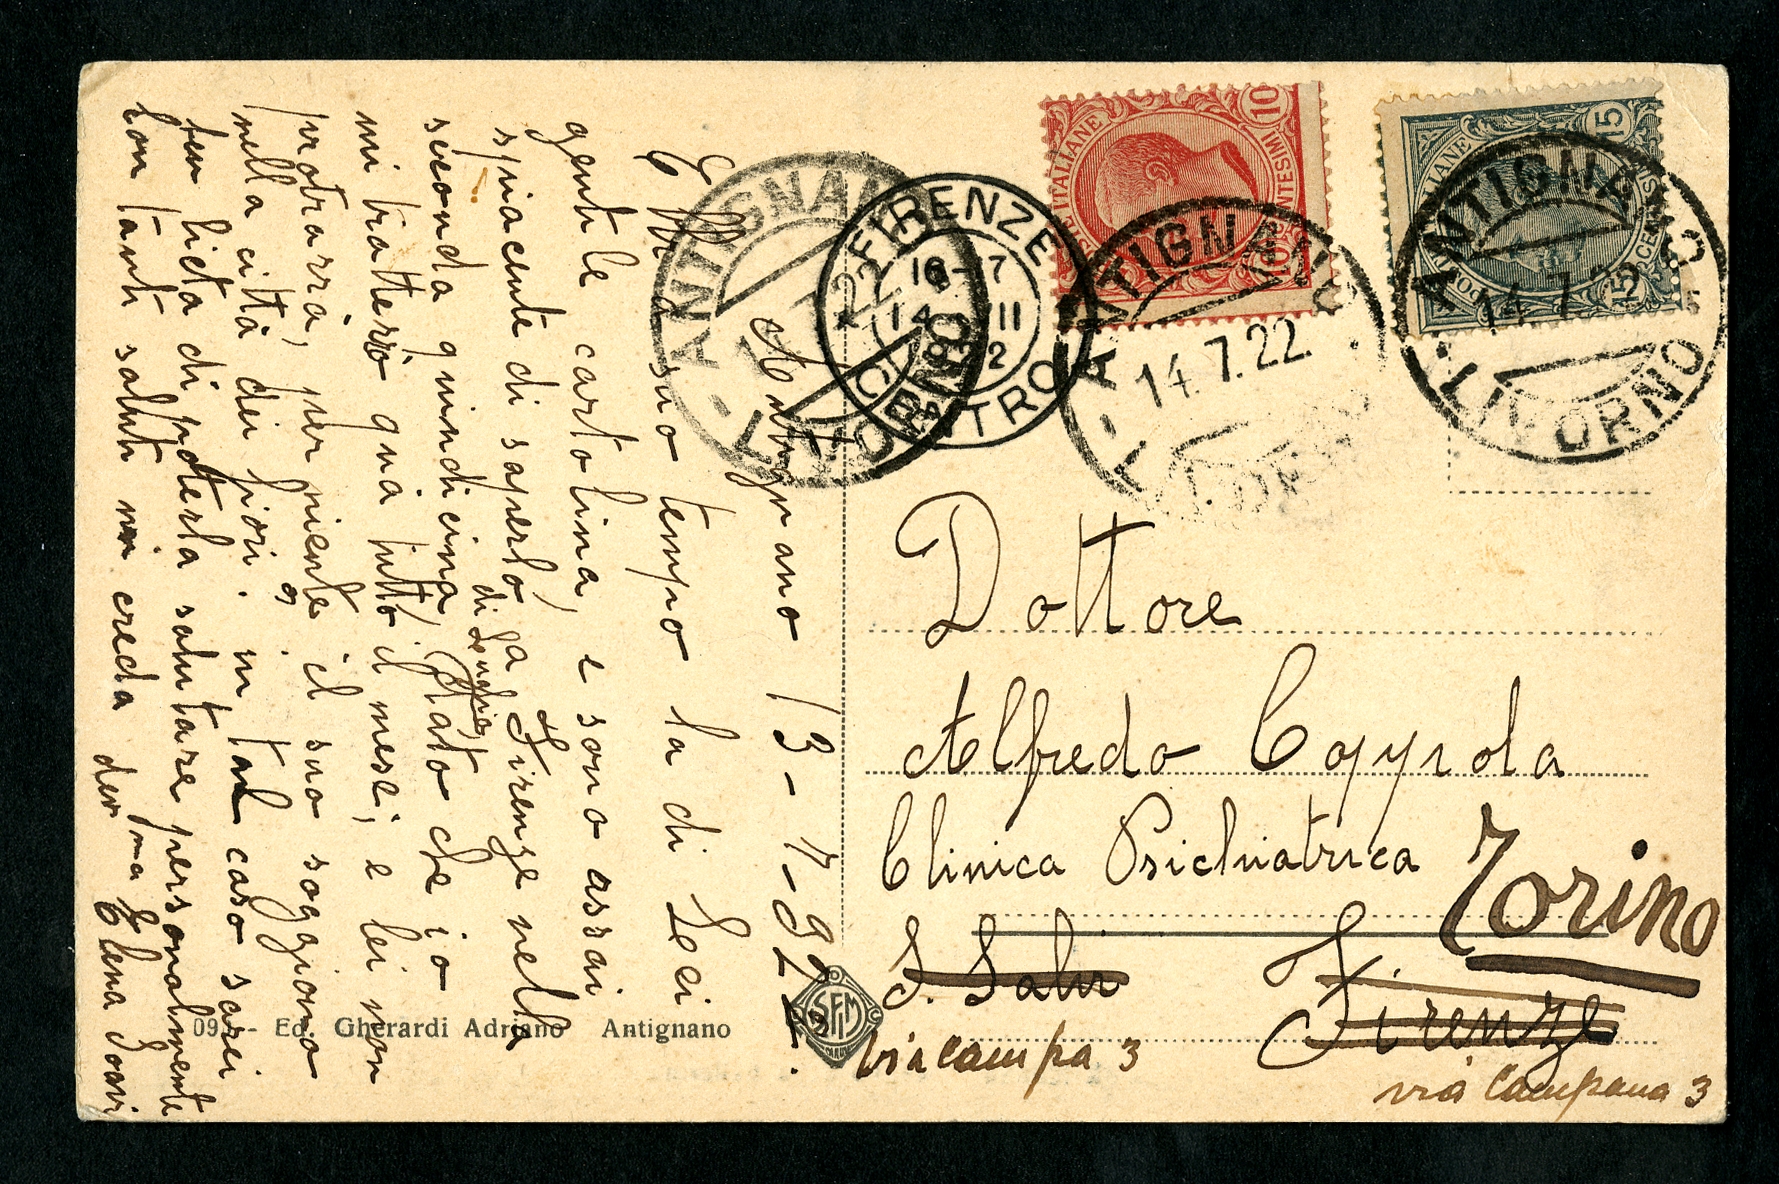 Antignano 13-7-922.
Ebbi a suo tempo la di Lei
gentile cartolina, e sono assai
spiacente di saperlo a Firenze nella
seconda quindicina, di Luglio, stato che io
mi tratterrò quà tutto il mese; e lei non
protrarrà, per niente il suo soggiorno
nella città dei fiori? in tal caso sarei
ben lieta di poterla salutare personalmente
Con tanti saluti mi creda dev ma Elena
Dottore
Alfredo Coppola
Clinica Psichiatrica
Torino
S. Salvi Firenze
via Campana 3
via Campana 3
09 - Ed. Gherardi Adriano Antignano
SFM
ANTIGNANO
LIVORNO
FIRENZE
16-17
14 VII
22
CENTRO
POSTE ITALIANE
CENTESIMI
10
10
ANTIGNANO
14.7.22
LIVORNO
POSTE ITALIANE
CENTESIMI
15
15
ANTIGNANO
14.7.22
LIVORNO